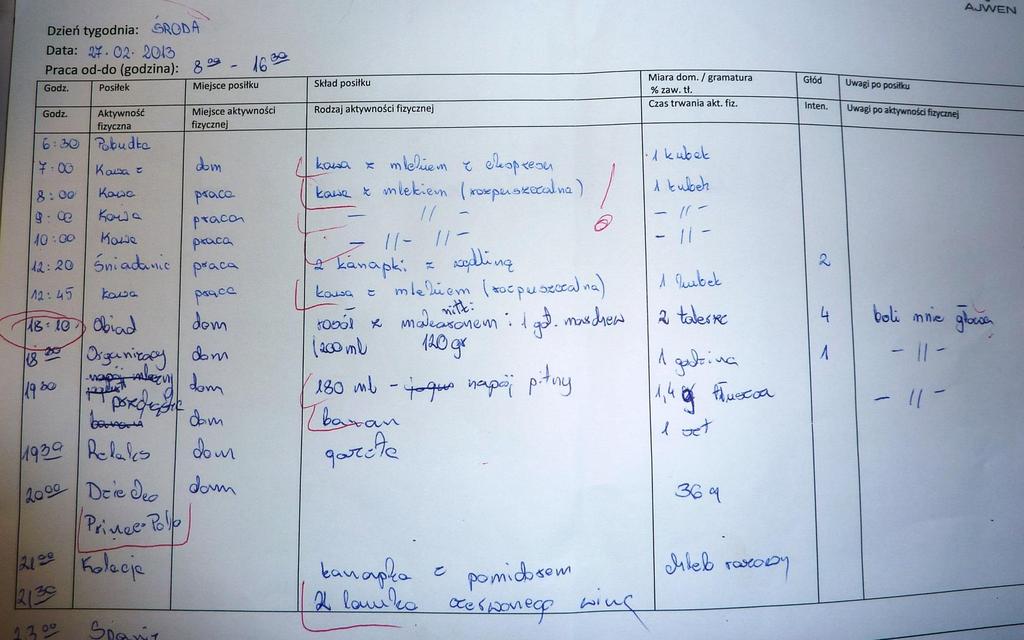 AJWEN
Dzień tygodnia: ŚRODA
Data: 27.02.2013
Praca od-do (godzina): 8 00 - 16 30
Godz. Posiłek Miejsce posiłku Skład posiłku Miara dom. / gramatura % zaw. tł. Głód Uwagi po posiłku
Godz. Aktywność fizyczna Miejsce aktywności fizycznej Rodzaj aktywności fizycznej Czas trwania akt. fiz. Inten. Uwagi po aktywności fizycznej
6:30 Pobudka
7:00 Kawa z dom kawa z mlekiem z ekspresu 1 kubek
8:00 Kawa praca kawa z mlekiem (rozpuszczalna) 1 kubek
9:00 Kawa praca - // - - // -
10:00 Kawa praca - // - // - - // -
12:20 Śniadanie praca 2 kanapki z wędliną 2
12:45 kawa praca kawa z mlekiem (rozpuszczalna) 1 kubek
18:10 Obiad dom rosół z makaronem nitki: 1 gd. marchew 2 talerze 4 boli mnie głowa
1200ml 120gr
18 20 dom 1 godzina 1 - // -
19 00 napój mleczny dom 180 ml - napój pitny 1,4 g tłuszcza - // -
przekąska
banan dom banan 1 szt
19 30 Relaks dom gazeta
20 00 Dziecko dom 36 g
Prince Polo
21 00 Kolacja kanapka z pomidorem chleb razowy
21 30 2 lampka czerwonego wina
23 00 Spanie